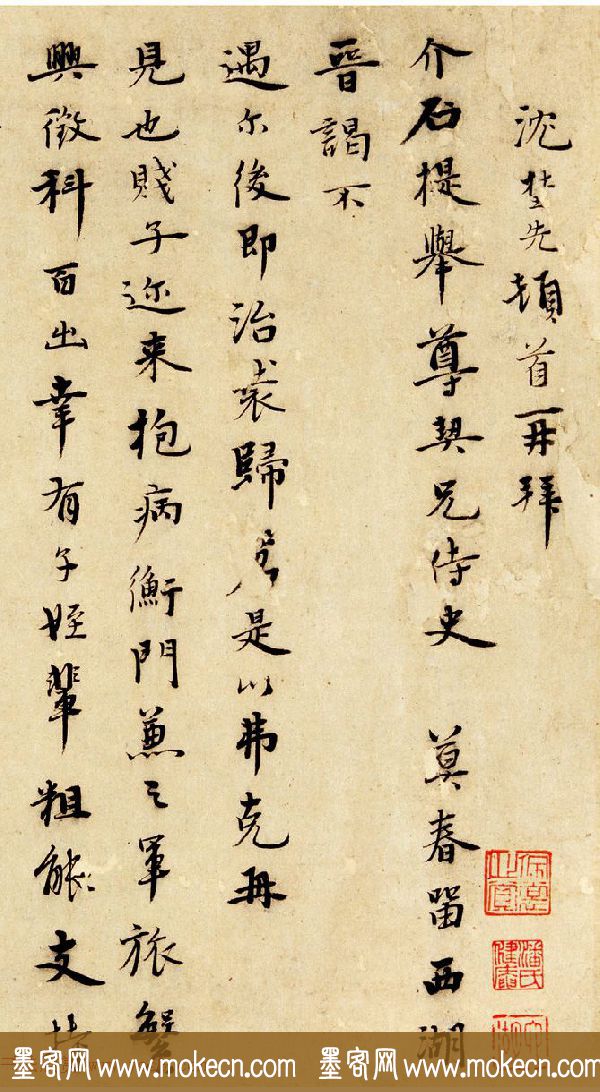 沈埜先頓首再拜
介石提舉尊契兄侍史　莫春留西湖
晉謁不
遇尓後即治裝歸是以弗克再
見也賤子迩来抱病衡門兼之軍旅繁
興徵科百出幸有子姪輩粗能支
墨客网 www.mokecn.com 墨客网 www.mokecn.com